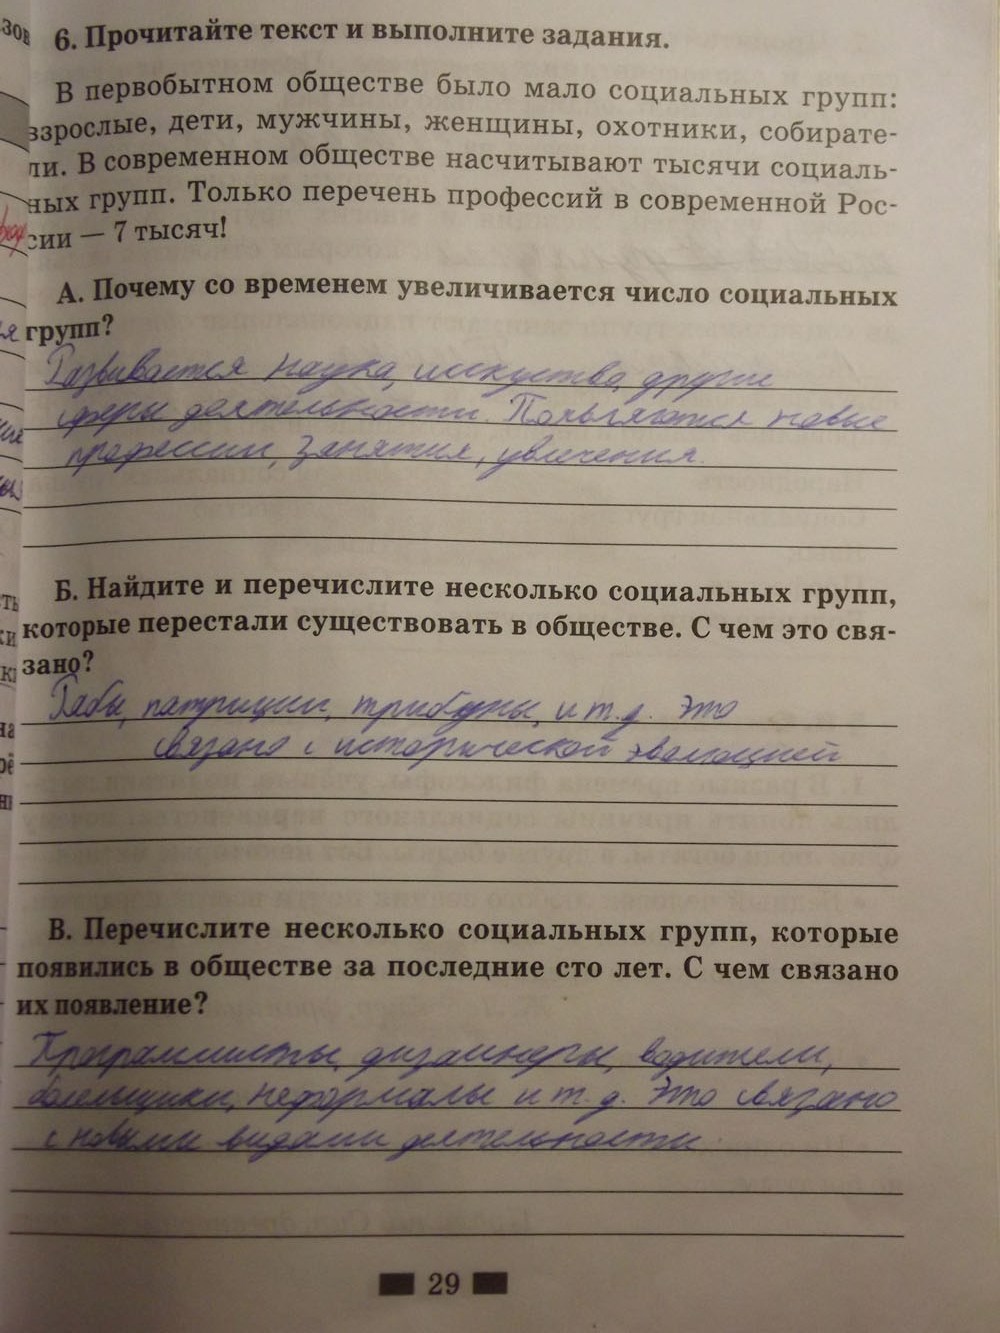 6. Прочитайте текст и выполните задания.
В первобытном обществе было мало социальных групп:
взрослые, дети, мужчины, женщины, охотники, собирате-
ли. В современном обществе насчитывают тысячи социаль-
ных групп. Только перечень профессий в современной Рос-
сии — 7 тысяч!
А. Почему со временем увеличивается число социальных
групп?
Развивается наука, искусство, другие
сферы деятельности. Появляются новые
профессии, занятия, увлечения.
Б. Найдите и перечислите несколько социальных групп,
которые перестали существовать в обществе. С чем это свя-
зано?
Рабы, патриции, трибуны, и т.д. Это
связано с исторической эволюцией
В. Перечислите несколько социальных групп, которые
появились в обществе за последние сто лет. С чем связано
их появление?
Программисты, дизайнеры, водители,
болельщики, неформалы и т.д. Это связано
с новыми видами деятельности
29